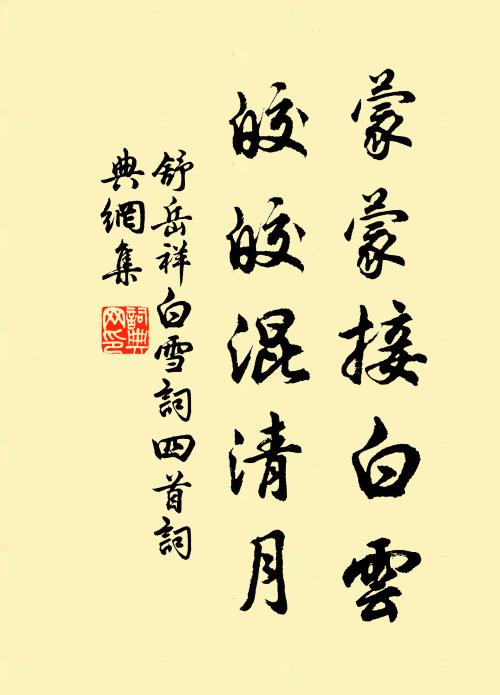 蒙蒙接白雲
皎皎混清月
舒岳祥白雪詞四首詞
典網集
詞典
网印